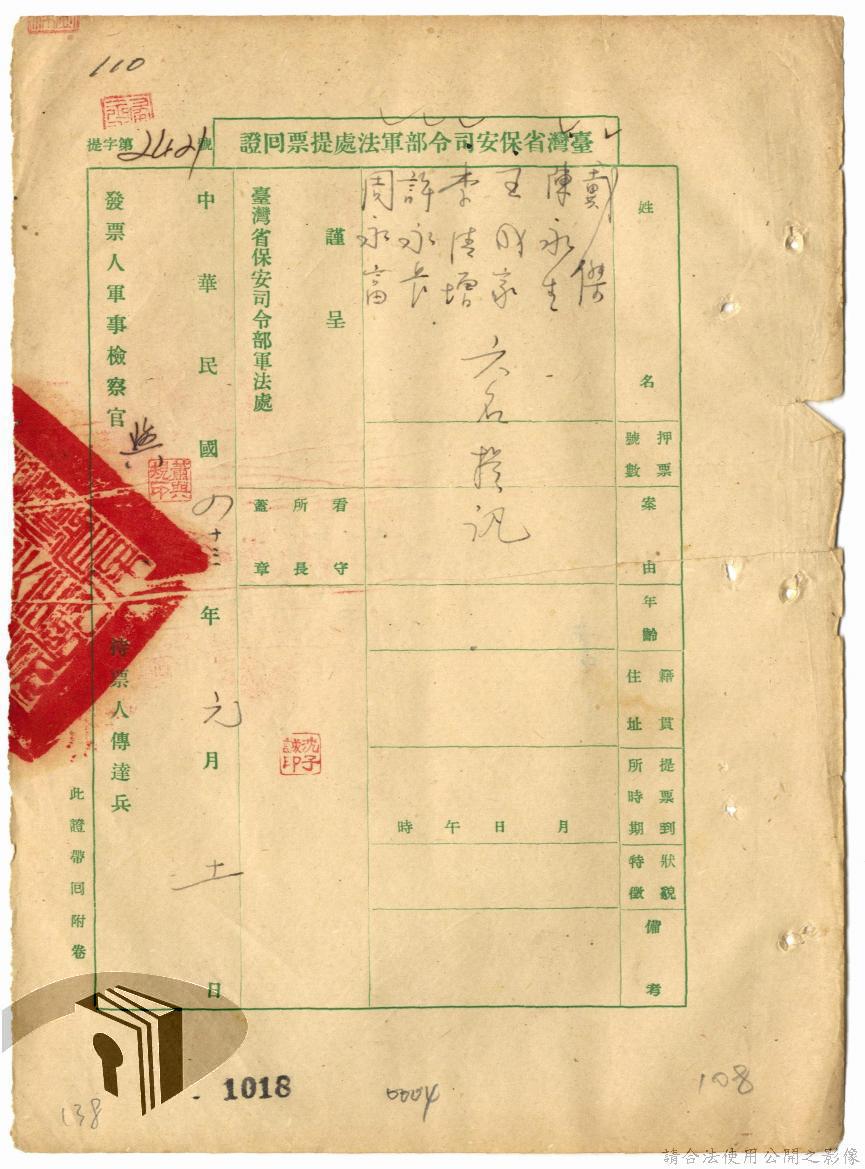 110
臺灣省保安司令部軍法處提票回證
提字第2421號
姓名
黃傑
陳永生
王成家
李清增
許永長
周永富
六名提訊
押票號數
案由
年齡
籍貫住址
提票到所時期
月 日 午 時
狀貌特徵
備考
謹呈
臺灣省保安司令部軍法處
看守所長蓋章
沈子誠印
中華民國四十三年元月十一日
發票人軍事檢察官
持票人傳達兵
此證帶回附卷
138
1018
0004
108
請合法使用公開之影像